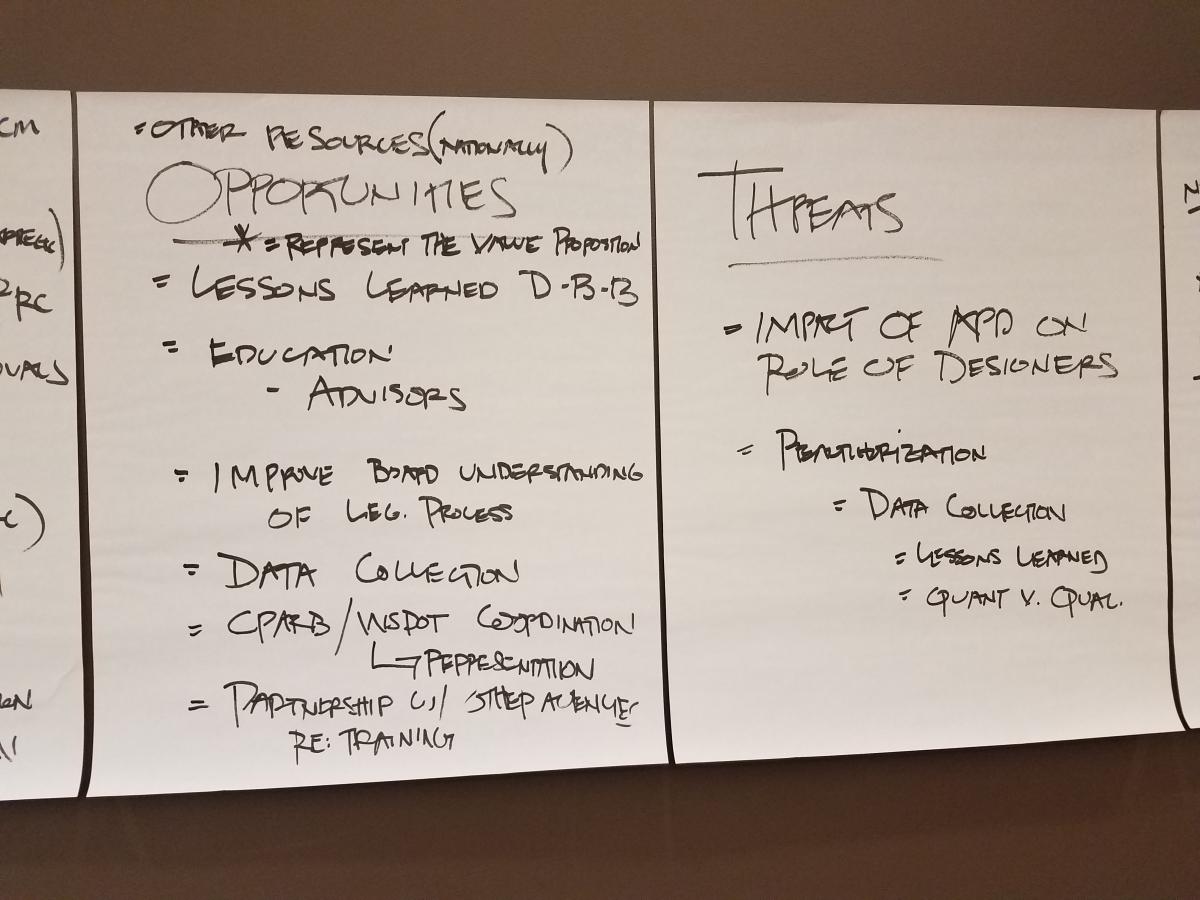 CM
RC
= OTHER RESOURCES (NATIONALLY)
OPPORTUNITIES
* = REPRESENT THE VALUE PROPOSITION
= LESSONS LEARNED D-B-B
= EDUCATION
- ADVISORS
= IMPROVE BOARD UNDERSTANDING
OF LEG. PROCESS
= DATA COLLECTION
= CPARB / WSDOT COORDINATION
↳ REPRESENTATION
= PARTNERSHIP W/ OTHER AGENCIES
RE: TRAINING
THREATS
= IMPACT OF APD ON
ROLE OF DESIGNERS
= REAUTHORIZATION
= DATA COLLECTION
= LESSONS LEARNED
= QUANT V. QUAL.